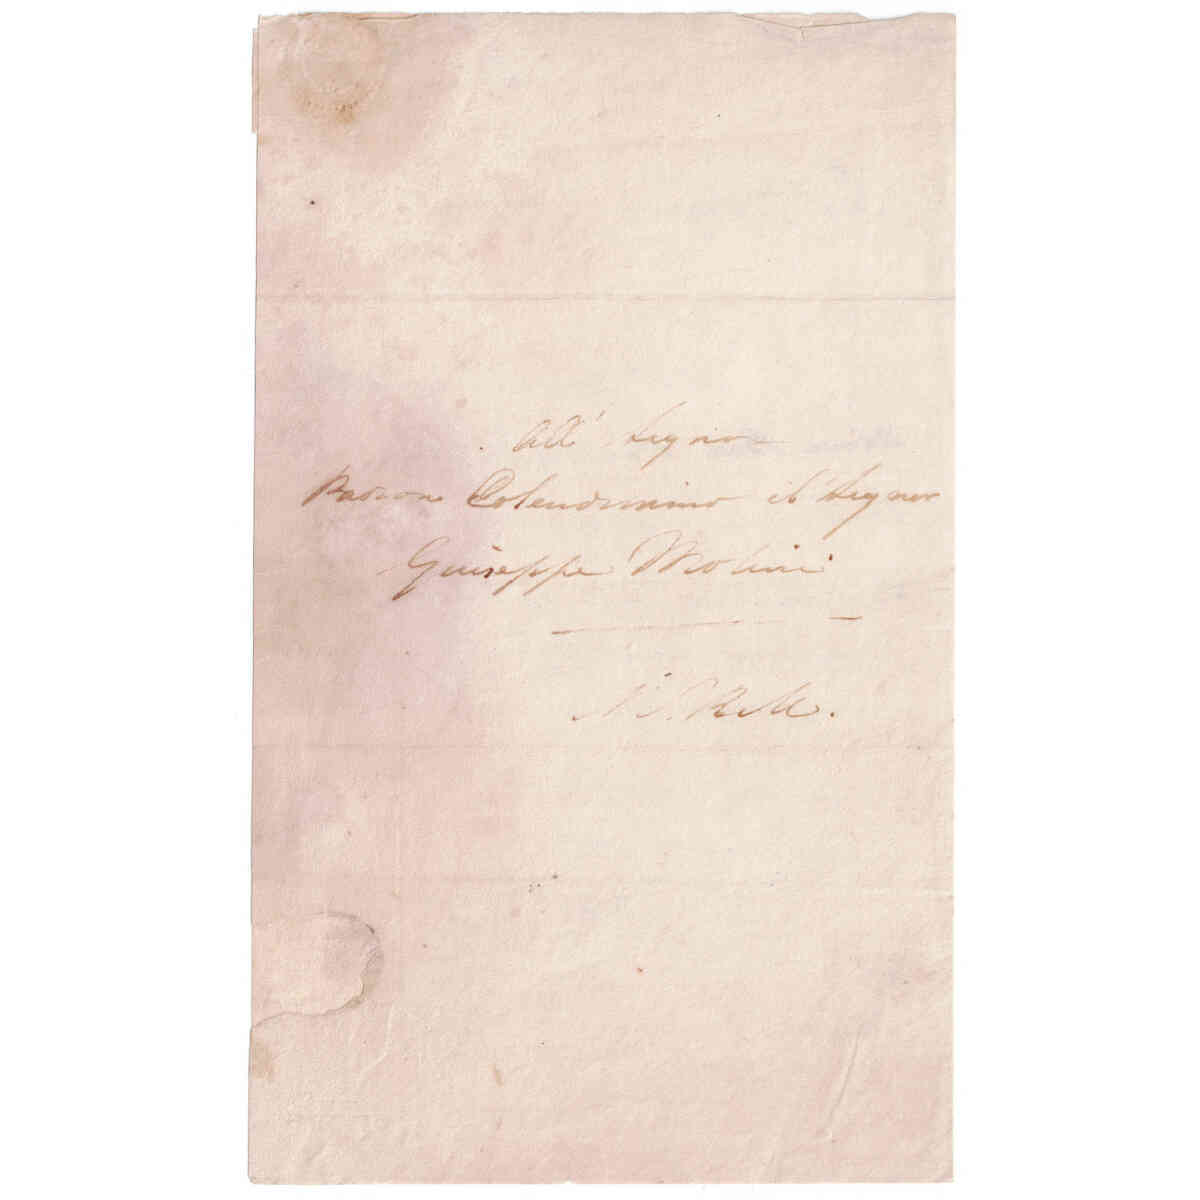 All' Segno
Padrone Colendissimo il Segnor
Giuseppe Molini